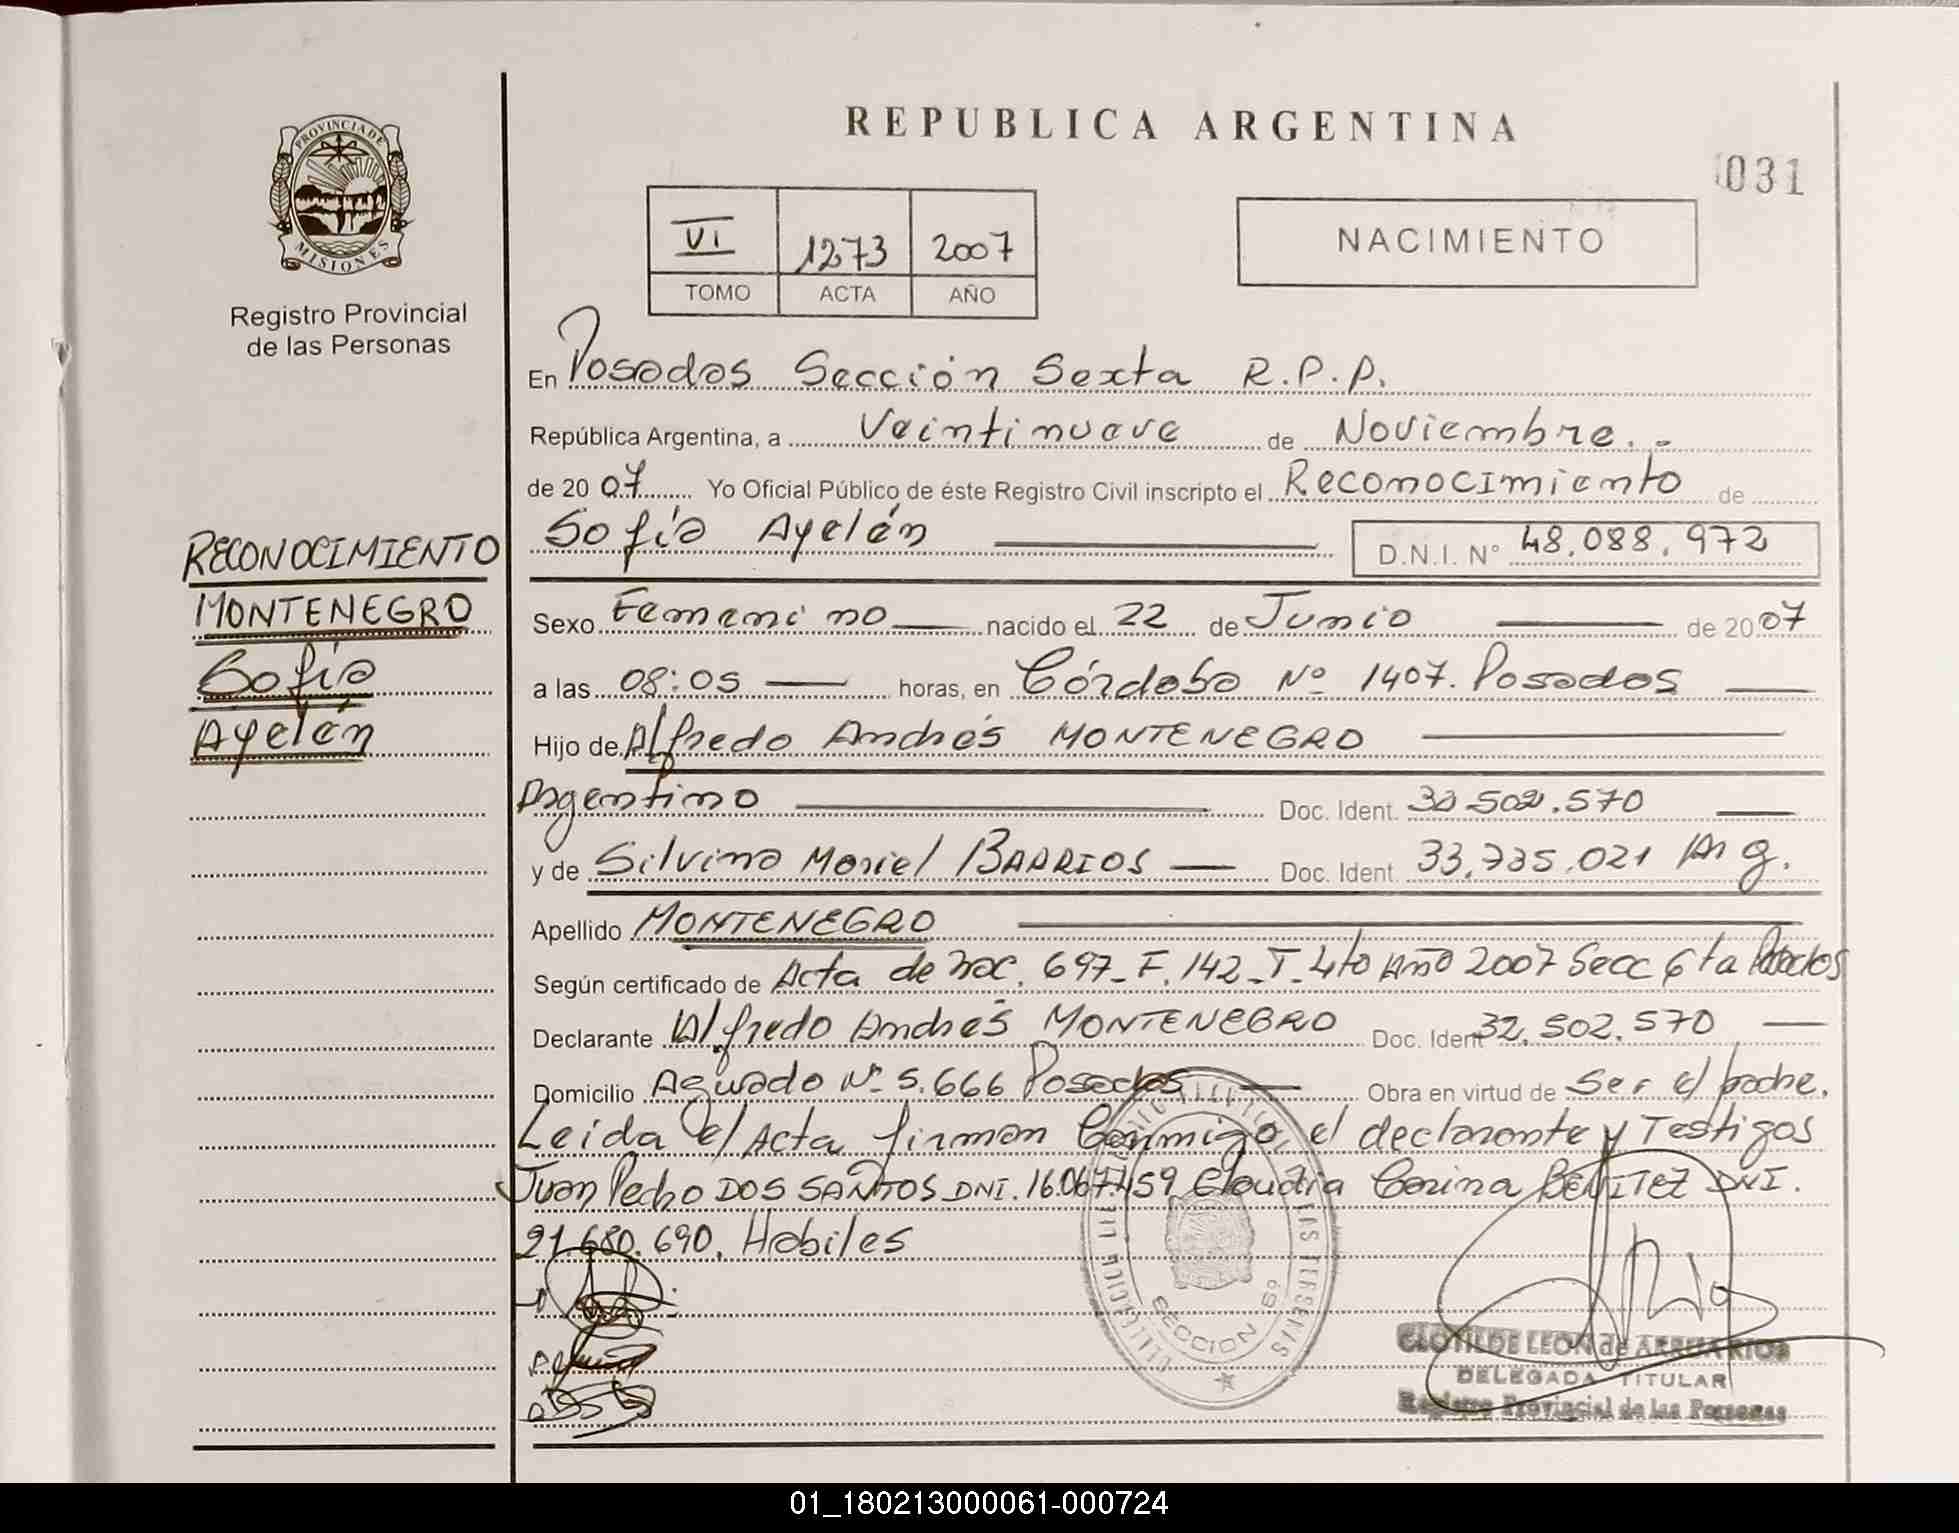 REPUBLICA ARGENTINA
031
PROVINCIA DE
MISIONES
Registro Provincial
de las Personas
VI 1273 2007
TOMO ACTA AÑO
NACIMIENTO
En Posadas Sección Sexta R.P.P.
República Argentina, a Veintinueve de Noviembre.-
de 2007 Yo Oficial Público de éste Registro Civil inscripto el Reconocimiento de
Sofía Ayelén D.N.I. N° 48.088.972
RECONOCIMIENTO
MONTENEGRO
Sofía
Ayelén
Sexo Femenino nacido el 22 de Junio de 2007
a las 08:05 horas, en Córdoba Nº 1407. Posadas
Hijo de Alfredo Andrés MONTENEGRO
Argentino Doc. Ident. 502.570
y de Silvina Mariel BARRIOS Doc. Ident. 33.735.021 Arg.
Apellido MONTENEGRO
Según certificado de Acta de nac. 697_F.142_T_4to Año 2007 Secc 6ta Posadas
Declarante Alfredo Andrés MONTENEGRO Doc. Ident 32.502.570
Domicilio Aguado Nº 5.666 Posadas Obra en virtud de Ser el padre.
Leida el Acta firman Conmigo el declarante y Testigos
Juan Pedro DOS SANTOS DNI. 16.067.459 Claudia Corina BENITEZ DNI.
21.680.690. Habiles
SECCION 6º
CLOTILDE LEON de
DELEGADA TITULAR
Registro Provincial de las Personas
01_180213000061-000724